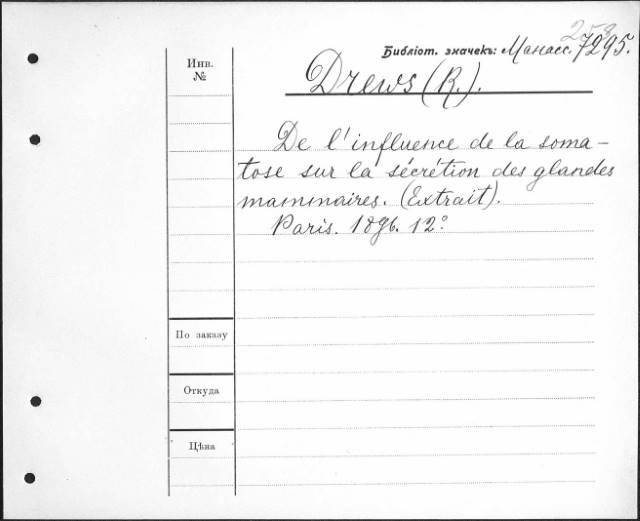 258
Библіот. значекъ: Манасс. 7295.
Инв.
№
Drews (R.).
De l'influence de la soma-
tose sur la sécrétion des glandes
mammaires. (Extrait).
Paris. 1896. 12°
По заказу
Откуда
Цѣна